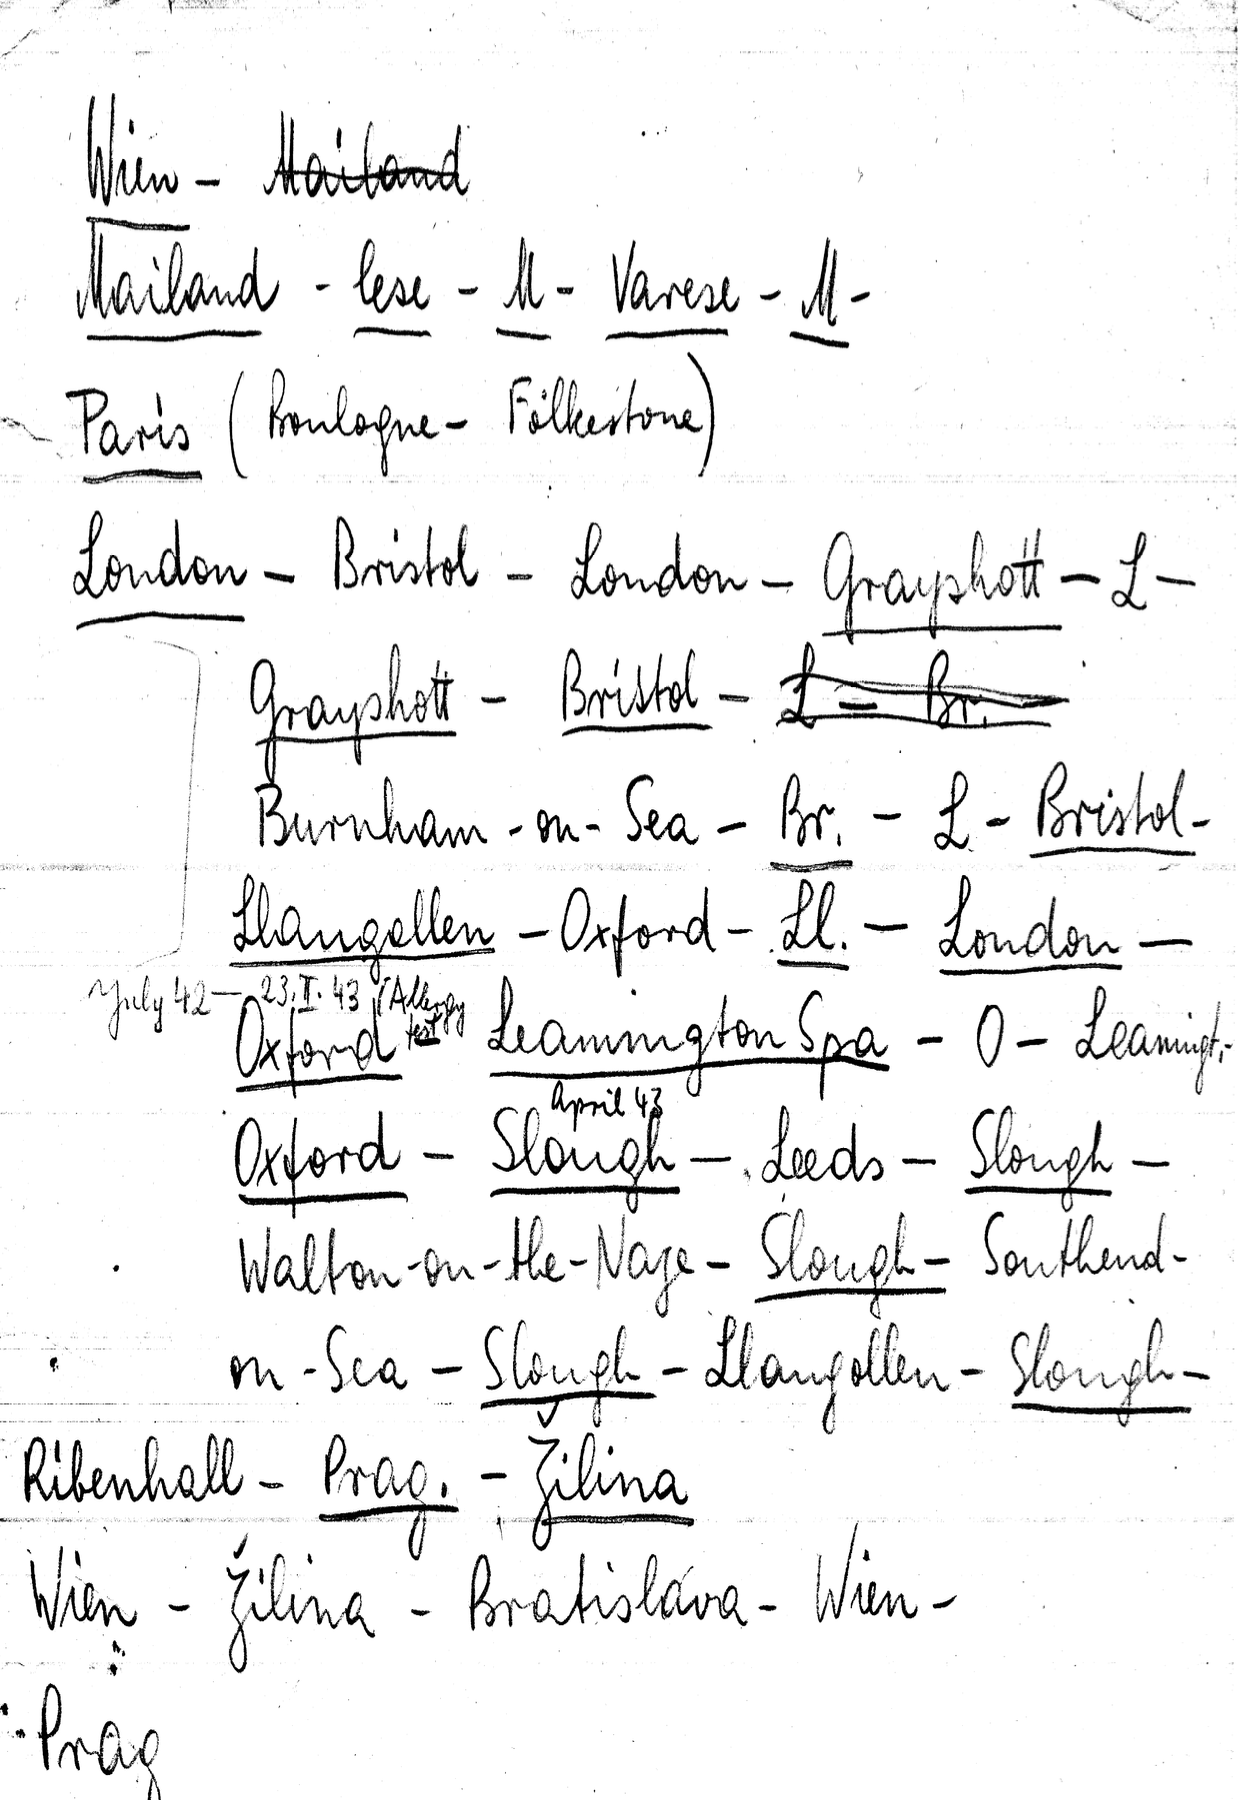 Wien - Mailand
Mailand - lese - M - Varese - M -
Paris (Boulogne - Folkestone)
London - Bristol - London - Grayshott - L -
Grayshott - Bristol - L - Br.
Burnham-on-Sea - Br. - L - Bristol -
Llangollen - Oxford - Ll. - London -
July 42 - 23. II. 43 (Allergy test
Oxford - Leamington Spa - O - Leamingt. -
April 43
Oxford - Slough - Leeds - Slough -
Walton-on-the-Naze - Slough - Southend-
on-Sea - Slough - Llangollen - Slough -
Ribenhall - Prag. - Žilina
Wien - Žilina - Bratislava - Wien -
Prag